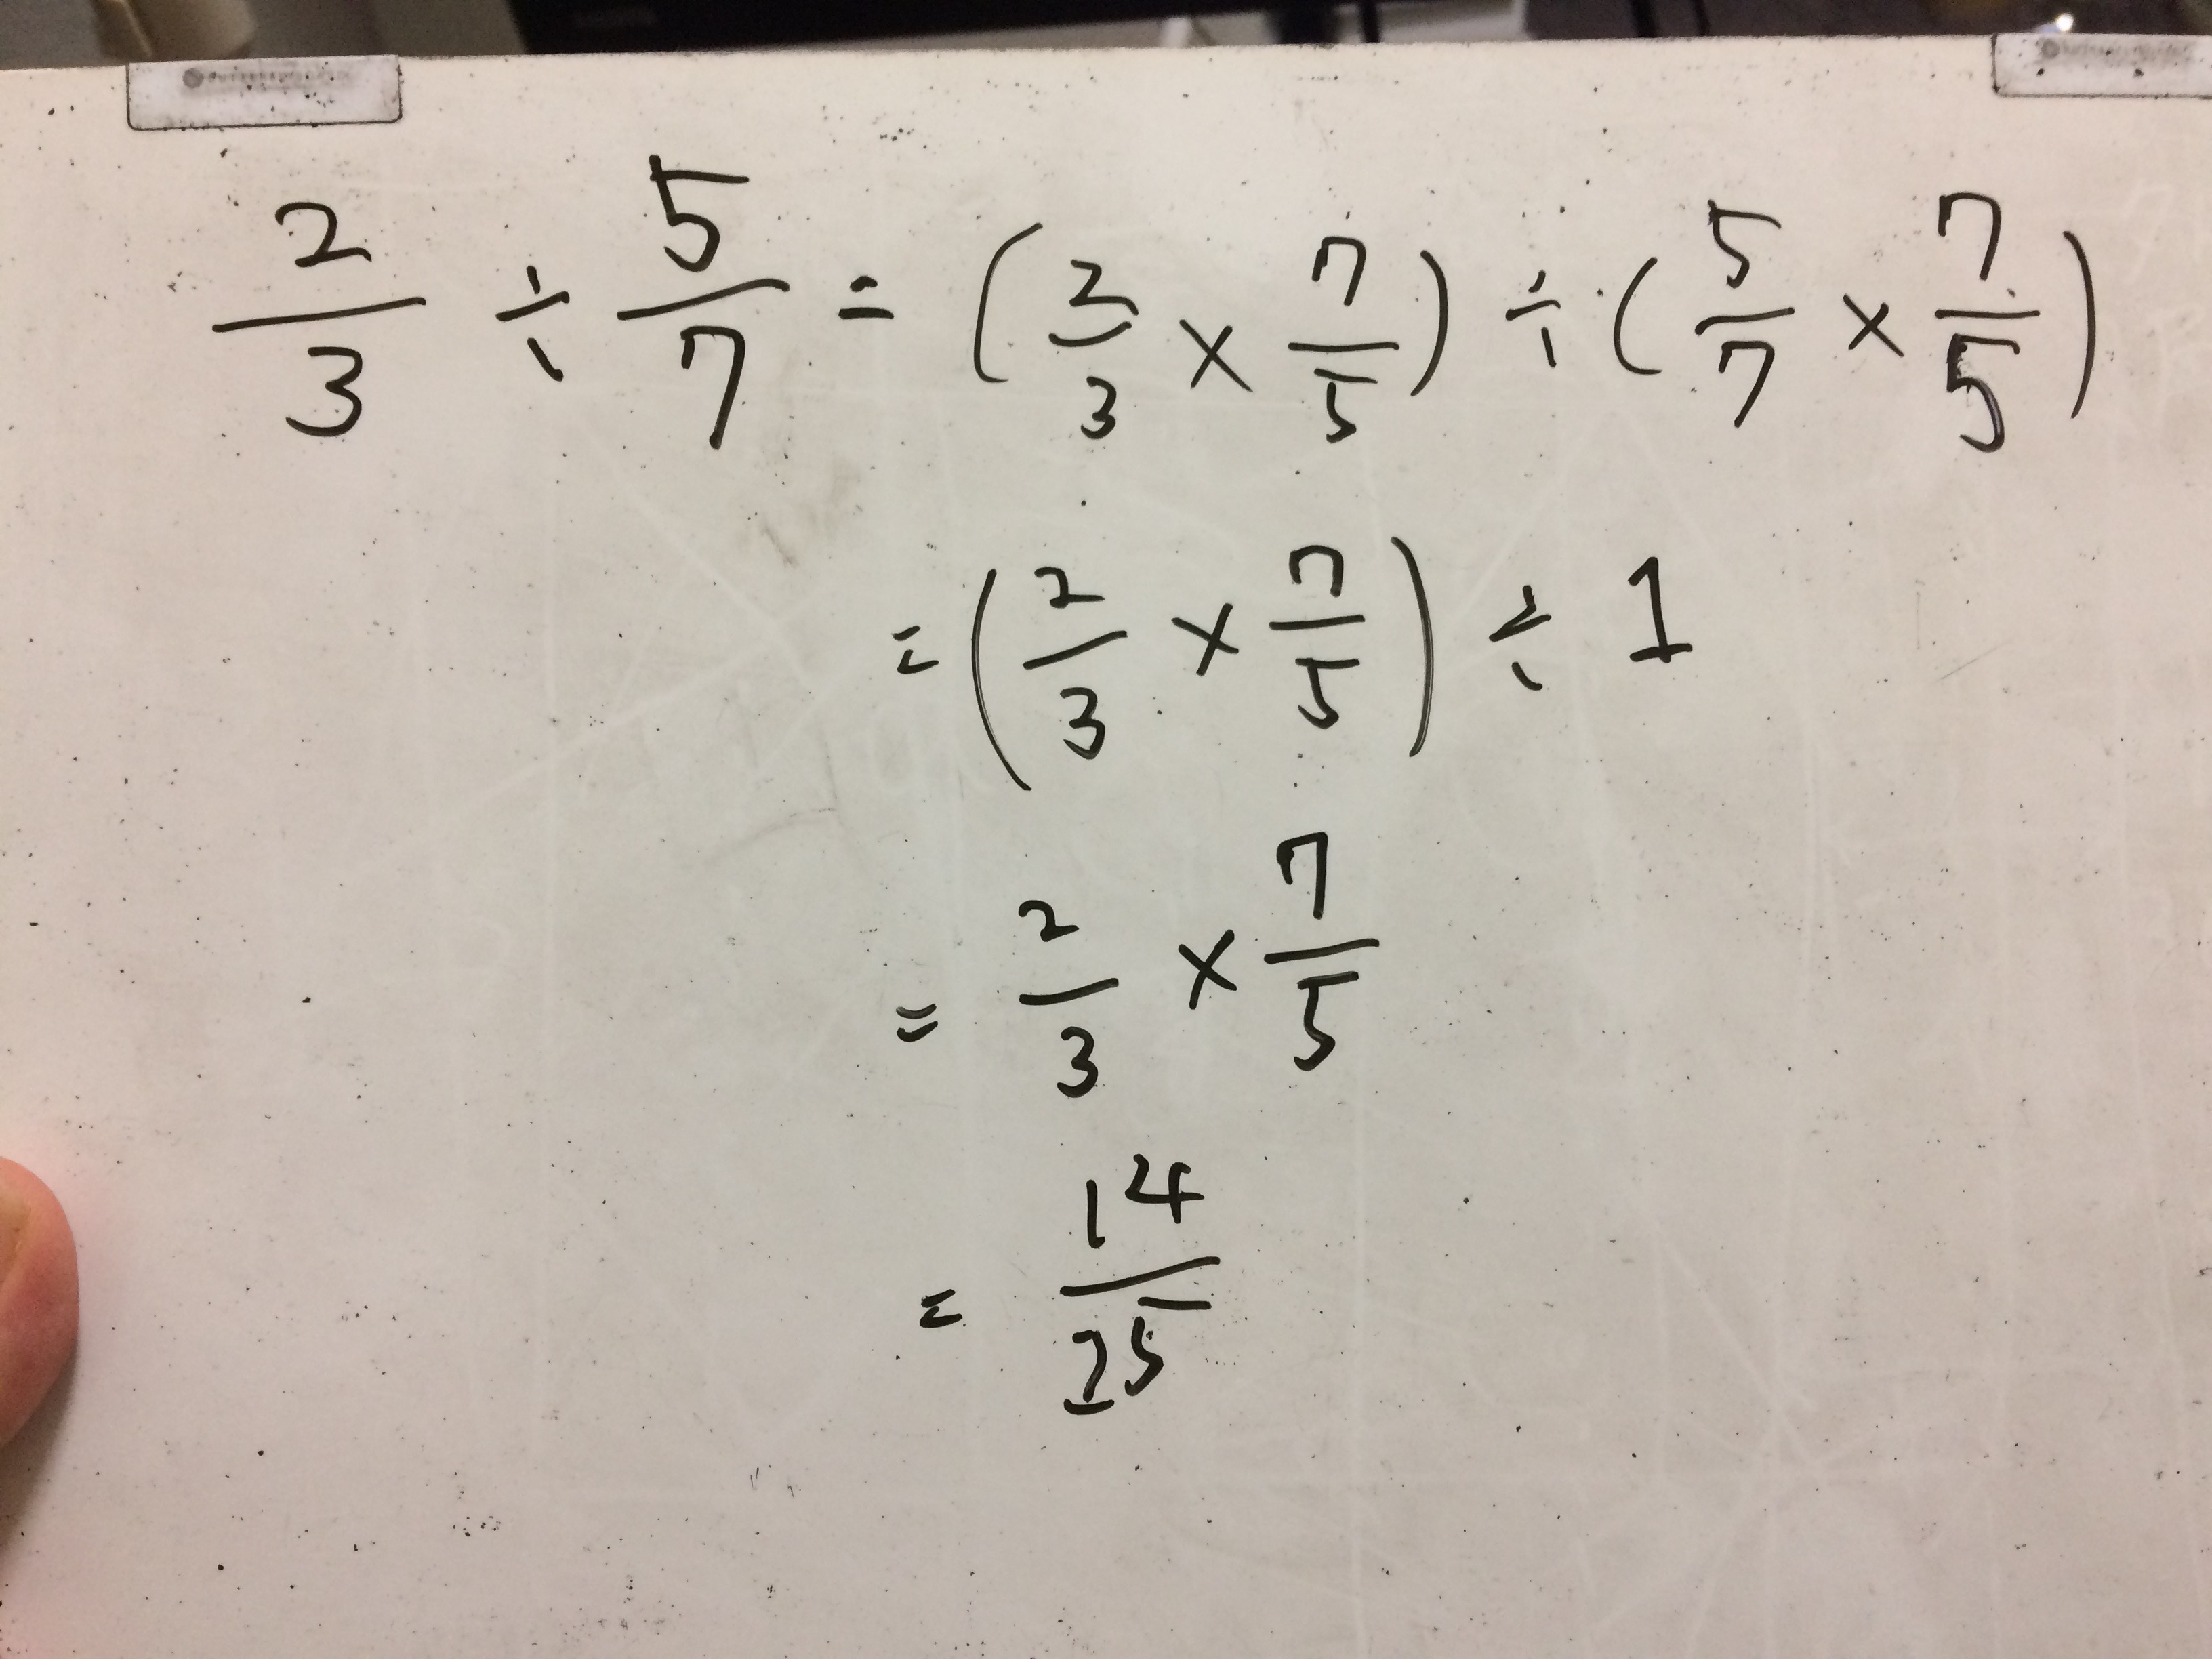 2/3 ÷ 5/7 = (2/3 × 7/5) ÷ (5/7 × 7/5)
= (2/3 × 7/5) ÷ 1
= 2/3 × 7/5
= 14/25